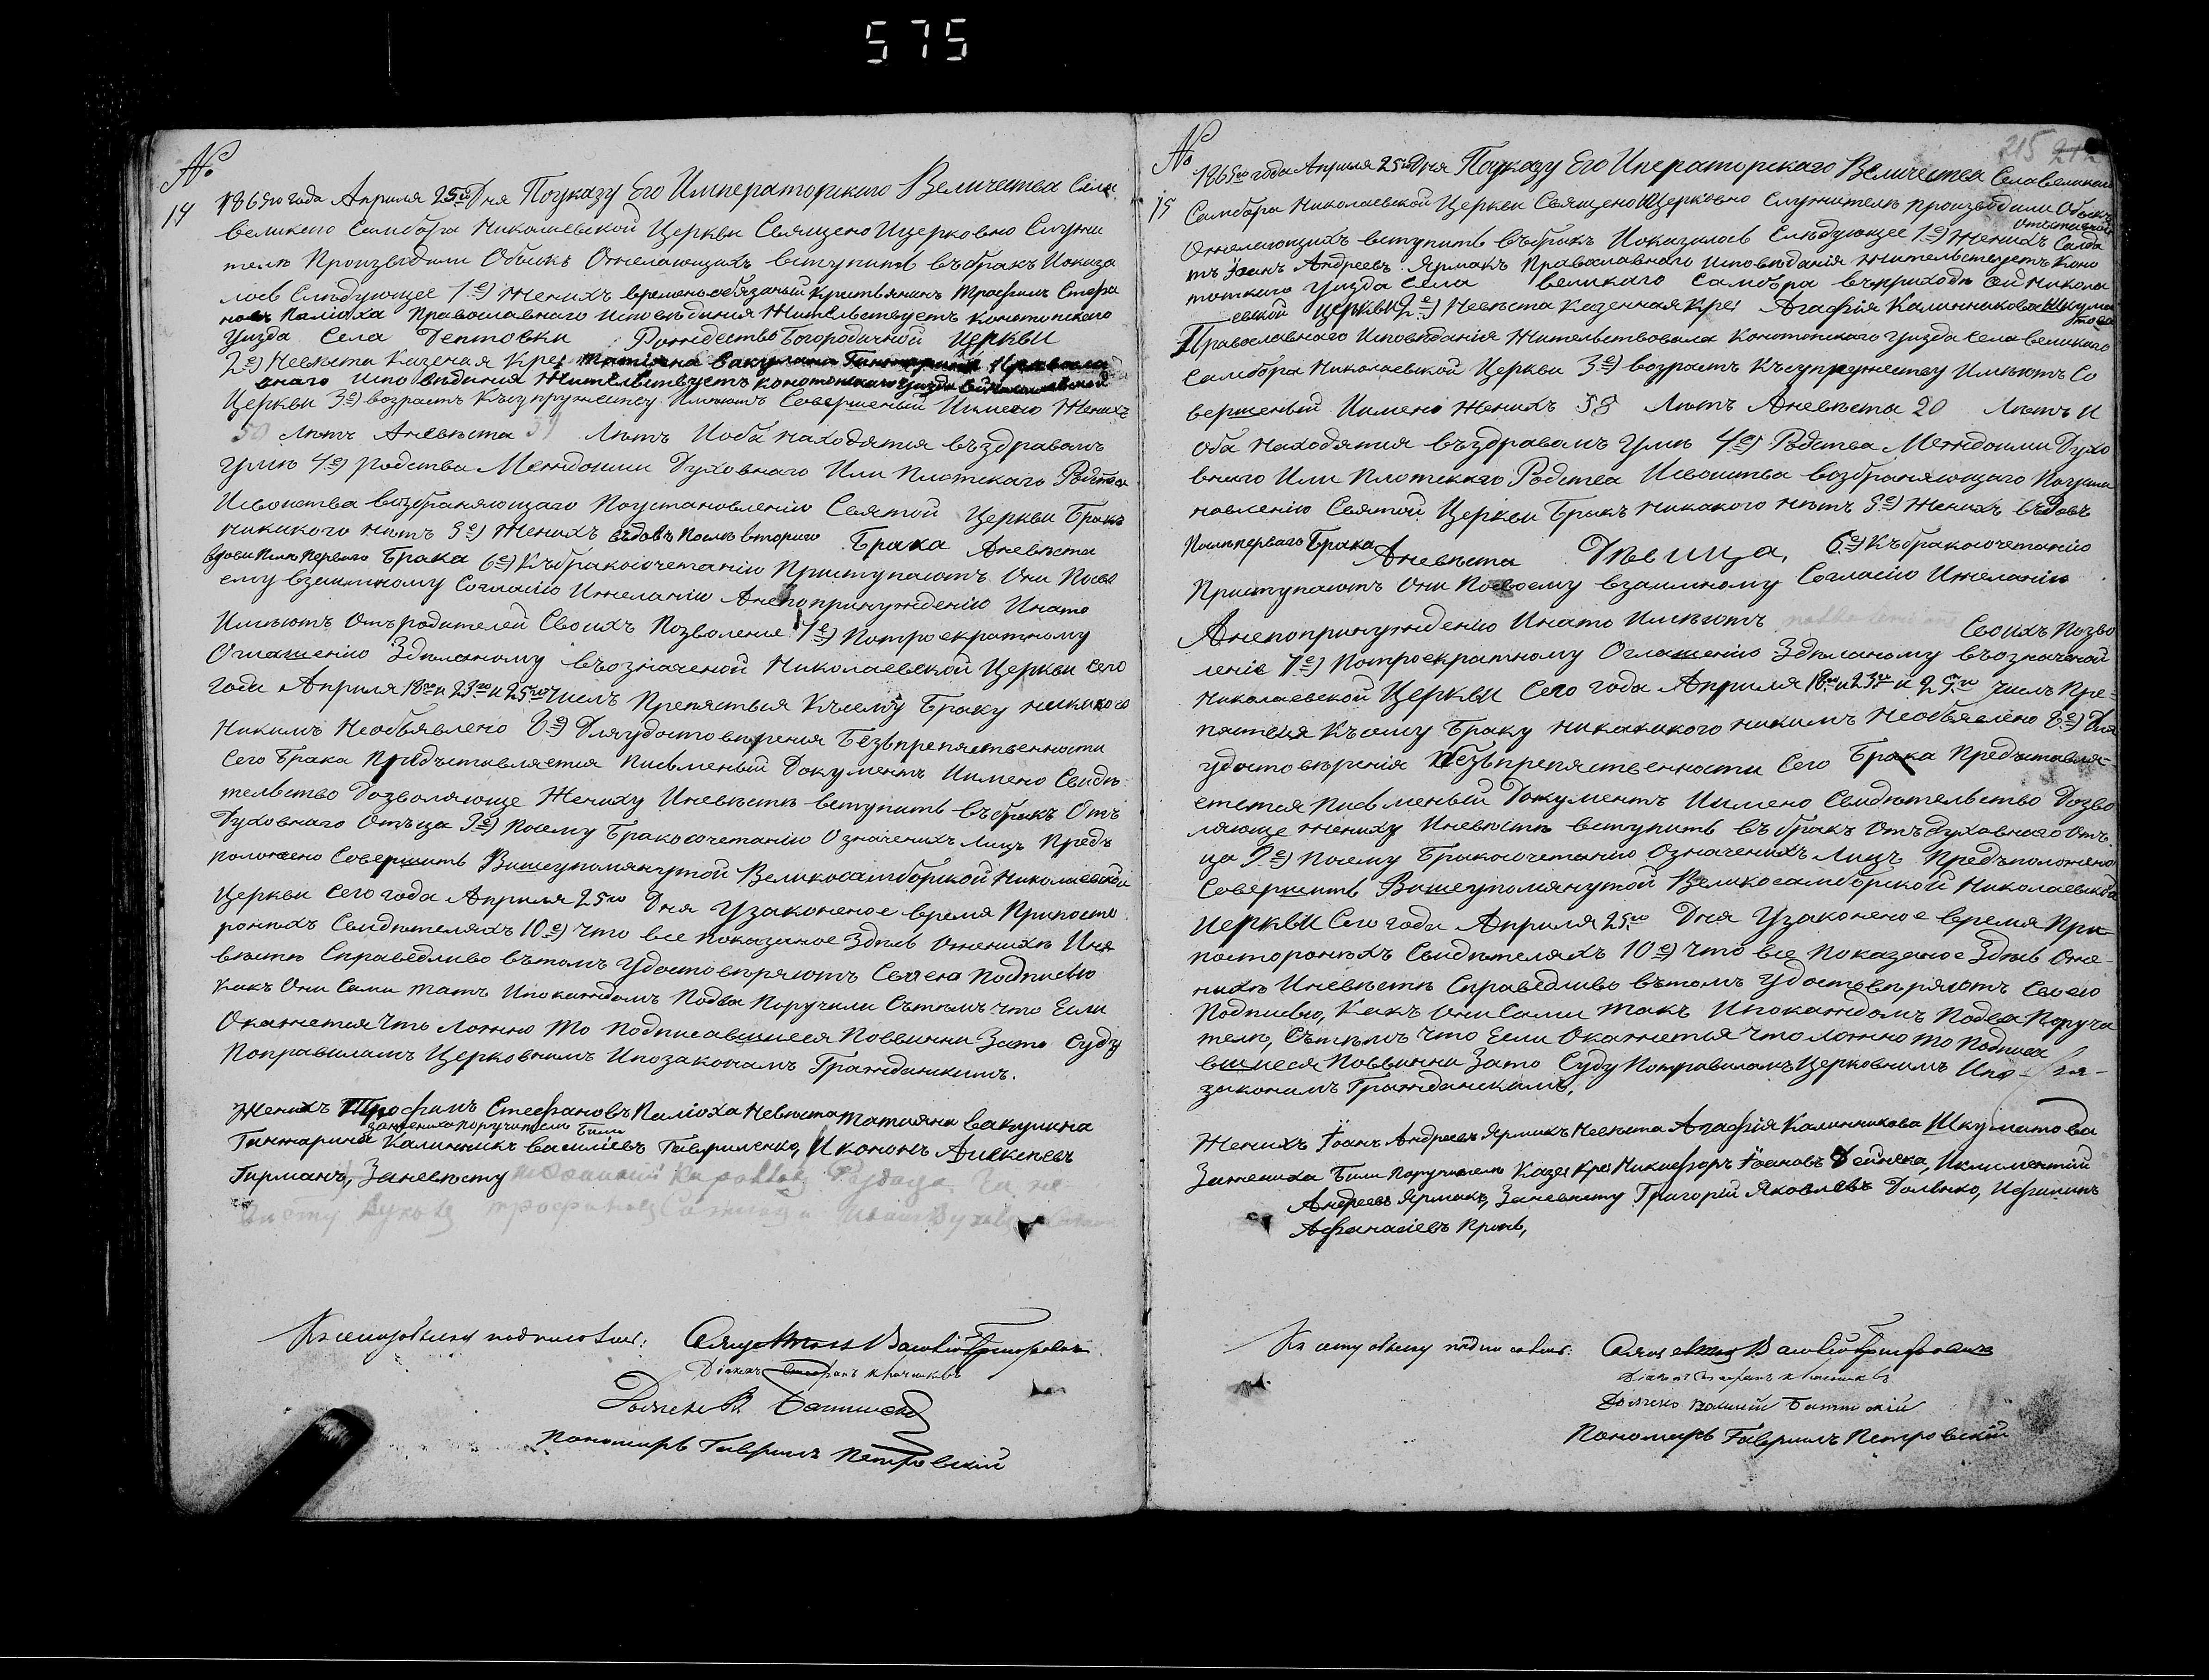 575
№
14
1865го года Апреля 25го Дня Поуказу Его Императорского Величества Села
великого Самбора Николаевской Церкви Священо Ицерковно Служи
тели Произвѣдили Обыскъ Ожелающихъ вступить въбракъ Иоказа
лось Слѣдующее 1е) Женихъ временообязаный Кристьянинъ Трофимъ Стефа
новъ Паліоха Православнаго исповѣданія Жительствуетъ Конотопского
Уизда Села Дептовки Рождество Богородичной Церкви
2е) Невѣста Казеная Крес Татіяна Вакулина Гинтарина Правосла
внаго исповѣданія Жительствуетъ конотопскаго Уизда Николаевской
Церкви 3е) возрастъ Късупружеству Имѣютъ Совершеный Иимено Женихъ
50 Лѣтъ Аневѣста 39 Лѣтъ Иоба находятся въздравомъ
Умѣ 4е) родства Междоими Духовнаго Или Плотскаго Родства
Исвойства возбраняющаго Поустановленію Святой Церкви Бракъ
никакого нѣтъ 5е) Женихъ вдовъ Послѣ второго Брака Аневѣста
вдова Послѣ Первого Брака 6е) Къбракосочетанію Приступаютъ Они Посво
ему взаимному Согласію Ижеланію Анепопринужденію Инато
Имѣютъ Отъродителей Своихъ Позволеніе 7е) Потроекратному
Оглашенію Здѣланому въозначеной Николаевской Церкви сего
года Апреля 18го и 23го и 25го Числъ Препятствія Късему Браку никакого
Никимъ Необъявлено 8е) Дляудостовѣренія Безъпрепятственности
Сего Брака Предъставляется Письменый Документъ Иимено Свидѣ
тельство Дозволяюще Жениху Иневѣстѣ вступить въбракъ Отъ
Духовнаго Отъца 9е) Посему Бракосочетанію Означенихъ Лицъ Предъ
положено Совершить Вишеупомянутой Великосамборской Николаевской
Церкви Сего года Апреля 25го Дня Узаконеное время Припосто
ронихъ Свидѣтеляхъ 10е) Что все показаное Здѣсь Оженихѣ Иня
вѣстѣ Справедливо вътомъ Удостовѣряютъ Своею Подписью
какъ Они Сами такъ Ипокаждомъ Подва Поручили Сътѣмъ что Если
Окажется что ложно то подписавшиеся Повинни Зато Суду
Поправиламъ Церковнимъ Ипозаконамъ Гражданскимъ.
Женихъ Трофимъ Стефановъ Паліоха Невѣста Татіяна Вакулина
Зажениха поручители Били
Гинтарина Калинникъ Василіевъ Гавриленко, И кононъ Алексѣевъ
Гирманъ, Заневѣсту
Къ сему обыску подписались: Священникъ Василій Григоровичъ
Діаконъ Стефанъ Крачковъ
Дьячекъ В. Батинскій
Пономарь Гаврилъ Петровскій
№
215 212
15
1865го года Апреля 25го Дня Поуказу Его Иператорскаго Величества Села великого
Самбора Николаевской Церкви Священо Ицерковно Служители производили Обыскъ
Отставной
Ожелающихъ вступить въбракъ Иоказалось Слѣдующее 1е) Женихъ Солда
тъ Іоанъ Андреевъ Ярмакъ Православнаго исповѣданія жительствуетъ Коно
топского Уизда Села великаго Самбора въприходѣ ой Никола
евской Церкви 2е) Невѣста Казенная Крес Агафія Калинникова Шкума
това
Православнаго Исповѣданія Жительствовала Конотопскаго Уизда Села великого
Самбора Николаевской Церкви 3е) возрастъ Късупружеству Имѣютъ Со
вершеный Иимено Женихъ 58 Лѣтъ Аневѣста 20 Лѣтъ И
Оба Находятся въздравомъ Умѣ 4е) Родства Междоими Духо
внаго Или Плотскаго Родства Исвоиства возбраняющаго Поуста
новленію Святой Церкви Бракъ никакого нѣтъ 5е) Женихъ вдовъ
Послѣ первого Брака Аневѣста Дѣвица, 6е) Къбракосочетанію
Приступаютъ Они Посвоему взаимному Согласію Ижеланію
Анепопринужденію Инато Имѣютъ Своихъ Позво
леніе 7е) Потроекратному Оглашенію Здѣланому въозначеной
Николаевской Церкви Сего года Апреля 18го и 23го и 25го Числъ Пре-
пятствія Късему Браку никакакого никимъ Необявлено 8е) Для
удостовѣренія безъпрепятственности Сего Брака Предъставля-
етется писменый Документъ Иимено Свидѣтельство Дозво
ляюще жениху Иневѣстѣ вступить въбракъ Отъ духовнаго Отъ
ца 9е) Посему Бракосочетанію Означенихъ Лицъ Предъположено
Совершить Вишеупомянутой Великосамборской Николаевской
Церкви Сего года Апреля 25го Дня Узаконеное время При-
посторонихъ Свидѣтеляхъ 10е) Что все показаное Здѣсь Оже-
нихѣ Иневѣстѣ Справедливо вътомъ Удостовѣряютъ Своею
Подписью, Какъ Они Сами такъ Ипокаждомъ Подва Поручи
тели, Сътѣмъ что Если Окажется что ложно то Подписа
вшиеся Повинни Зато Суду Поправиламъ Церковнимъ Ипо-
законамъ Гражданскимъ,
Женихъ Іоанъ Андреевъ Ярмакъ Невѣста Агафія Калинникова Шкуматова
Зажениха Били Поручители Казен Крес Никифоръ Іоановъ Дейнека, Иклиментій
Андреевъ Ярмакъ, Заневѣсту Григорій Яковлевъ Доленко, Ифилипъ
Афанасіевъ Пронь,
Къ сему обыску подписались: Священникъ Василій Григоровичъ
Діаконъ Стефанъ Крачковъ
Дьячекъ Василій Батинскій
Пономарь Гаврилъ Петровскій